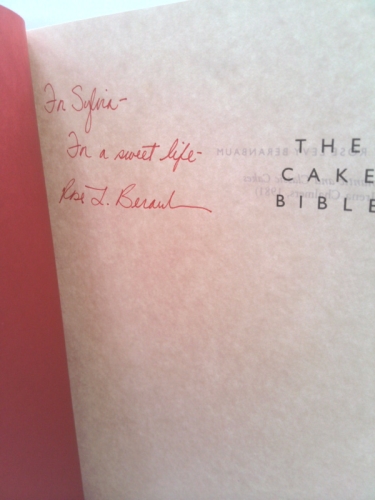 For Sylvia-
For a sweet life-
Rose L. Beranb
THE
CAKE
BIBLE
ROSE LEVY BERANBAUM